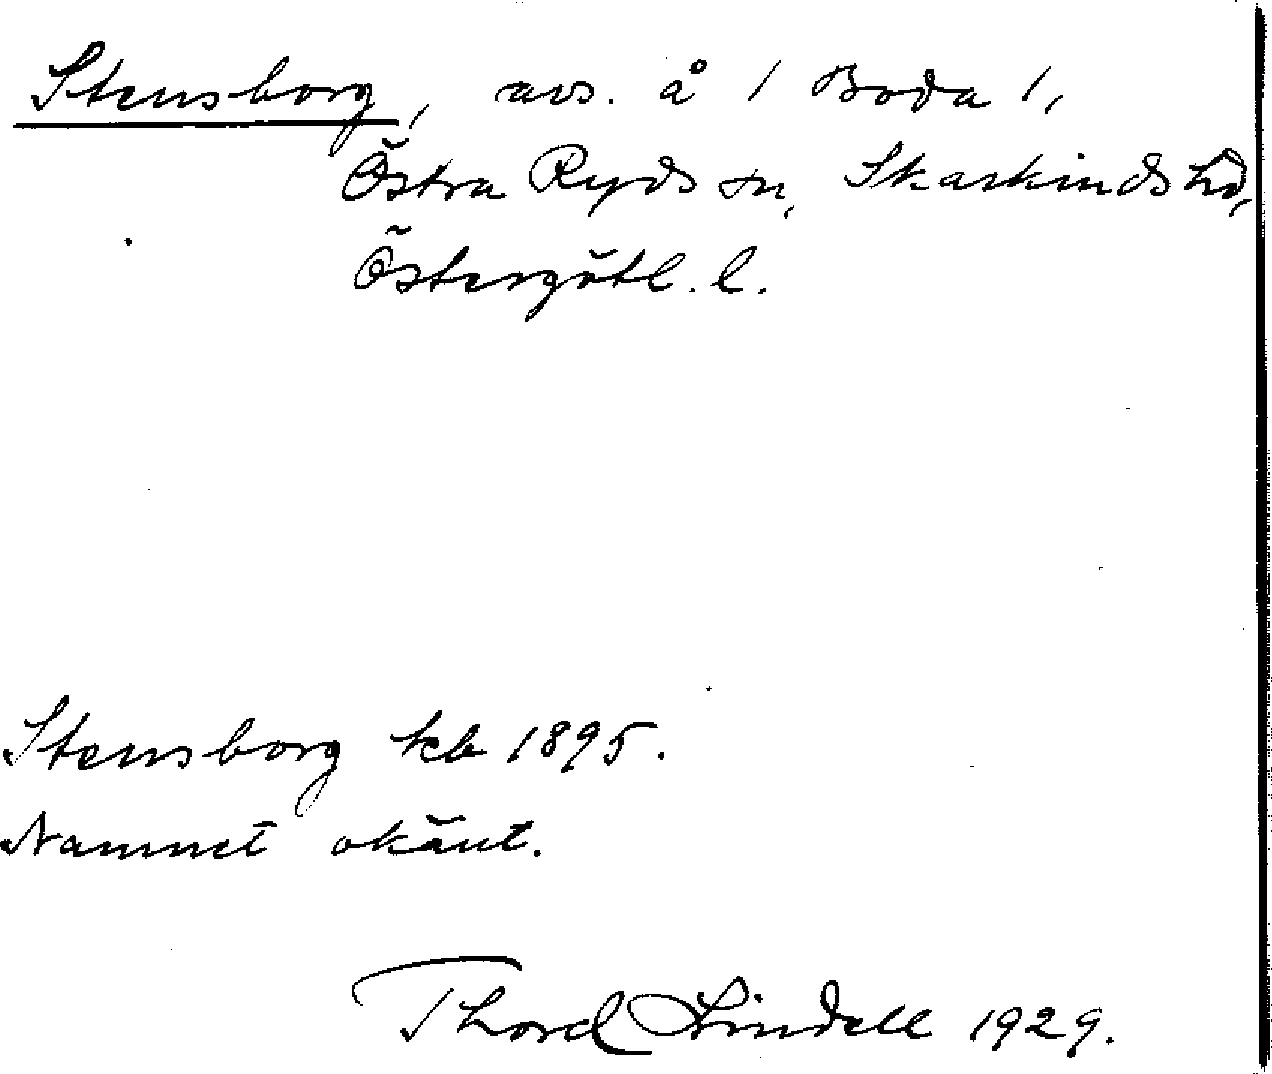 Stensborg, avs. å 1 Boda 1,
Östra Ryds sn, Skärkinds hd,
Östergötl. l.
Stensborg kb 1895.
Namnet okänt.
Thord Lindell 1929.